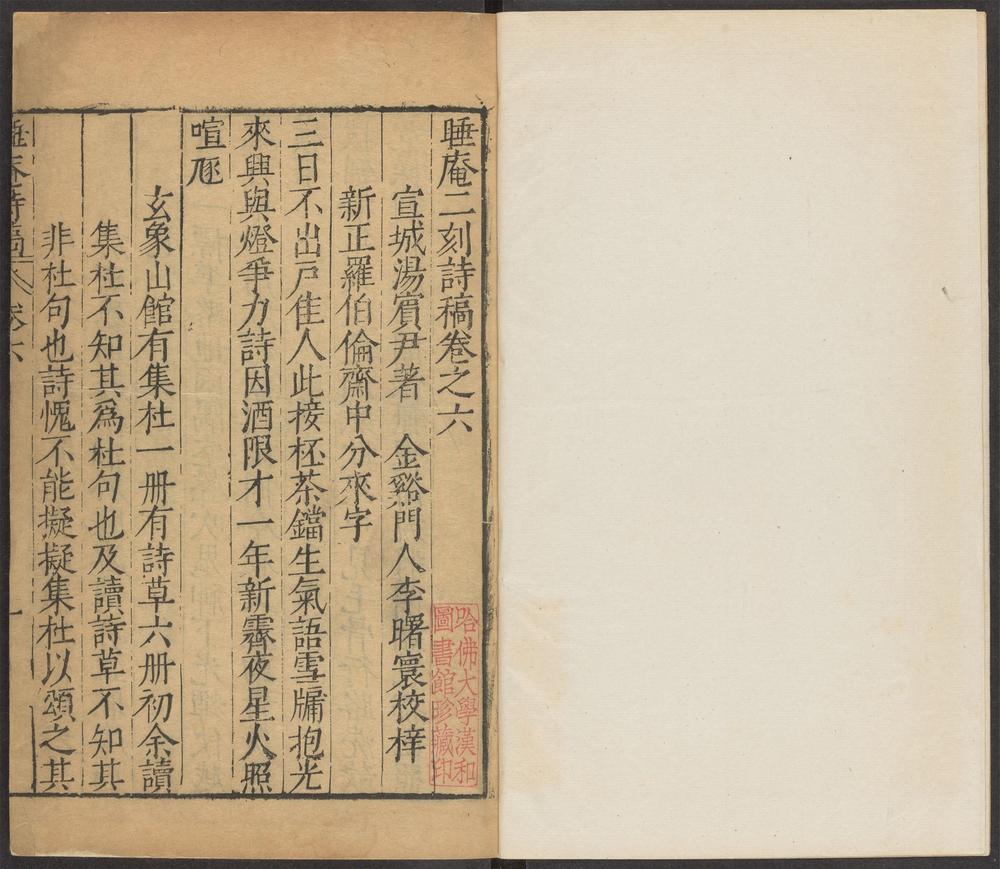 睡庵二刻詩稿卷之六
宣城湯賓尹著 金谿門人李曙寰校梓
新正羅伯倫齋中分來字
三日不出戸隹人此接杯茶鐺生氣語雪牖抱光
來興與燈爭力詩因酒限才一年新霽夜星火照
喧豗
玄象山館有集杜一册有詩草六册初余讀
集杜不知其爲杜句也及讀詩草不知其
非杜句也詩愧不能擬擬集杜以頌之其
睡庵詩稿 卷六 一
哈佛大學漢和
圖書館珍藏印